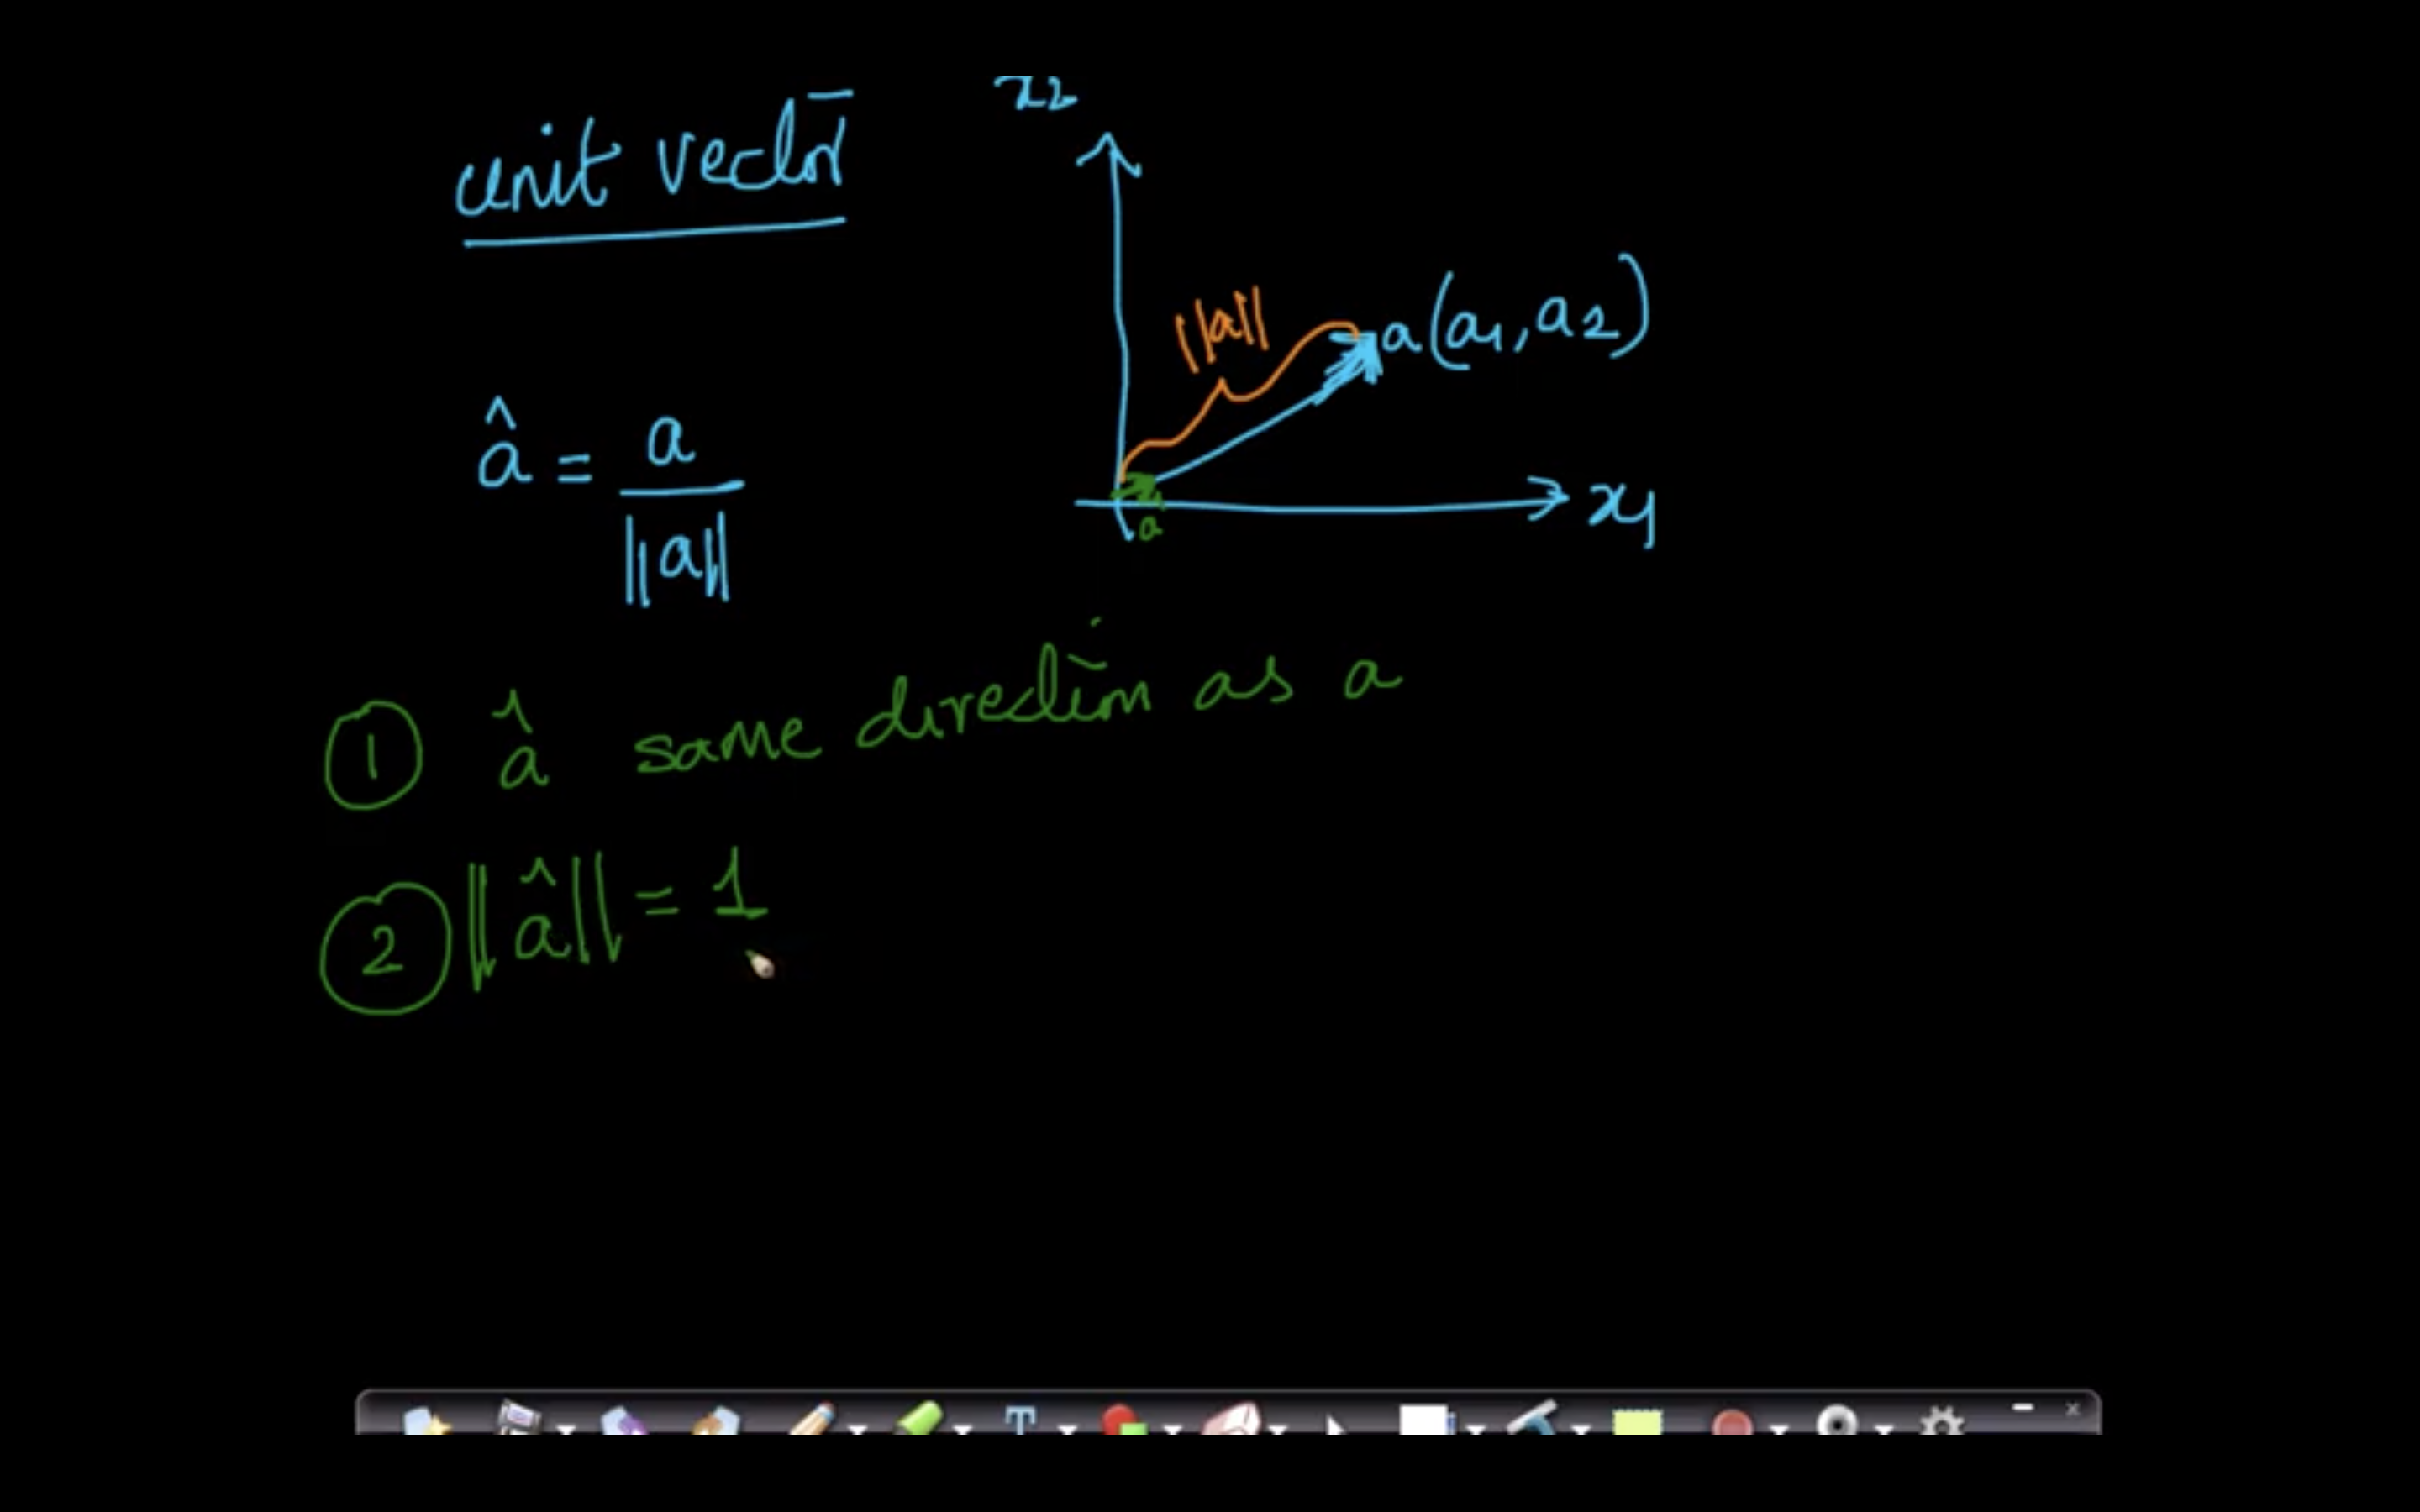 unit vector
x2
||a||
a(a1, a2)
â = a / ||a||
a
x1
① â same direction as a
② ||â|| = 1
T